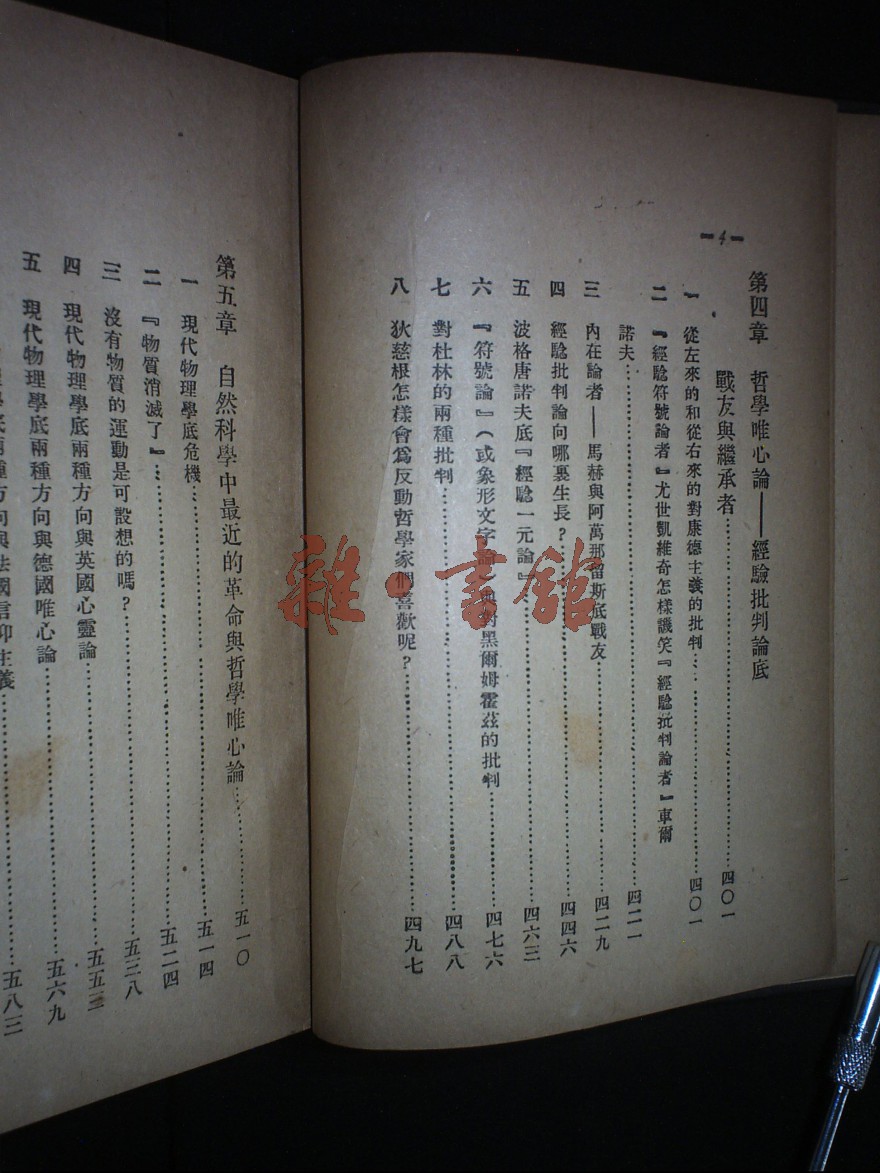 —4—
第四章　哲學唯心論——經驗批判論底
戰友與繼承者……四〇一
一　從左來的和從右來的對康德主義的批判……四〇一
二　『經驗符號論者』尤世凱維奇怎樣譏笑『經驗批判論者』車爾
諾夫……四二一
三　內在論者——馬赫與阿萬那留斯底戰友……四二九
四　經驗批判論向哪裏生長？……四四六
五　波格唐諾夫底『經驗一元論』……四六三
六　『符號論』（或象形文字論）與對黑爾姆霍茲的批判……四七六
七　對杜林的兩種批判……四八八
八　狄慈根怎樣會爲反動哲學家們喜歡呢？……四九七
第五章　自然科學中最近的革命與哲學唯心論……五一〇
一　現代物理學底危機……五一四
二　『物質消滅了』……五二四
三　沒有物質的運動是可設想的嗎？……五三八
四　現代物理學底兩種方向與英國心靈論……五五三
五　現代物理學底兩種方向與德國唯心論……五六九
理學底兩種方向與法國信仰主義……五八三
雜·書館